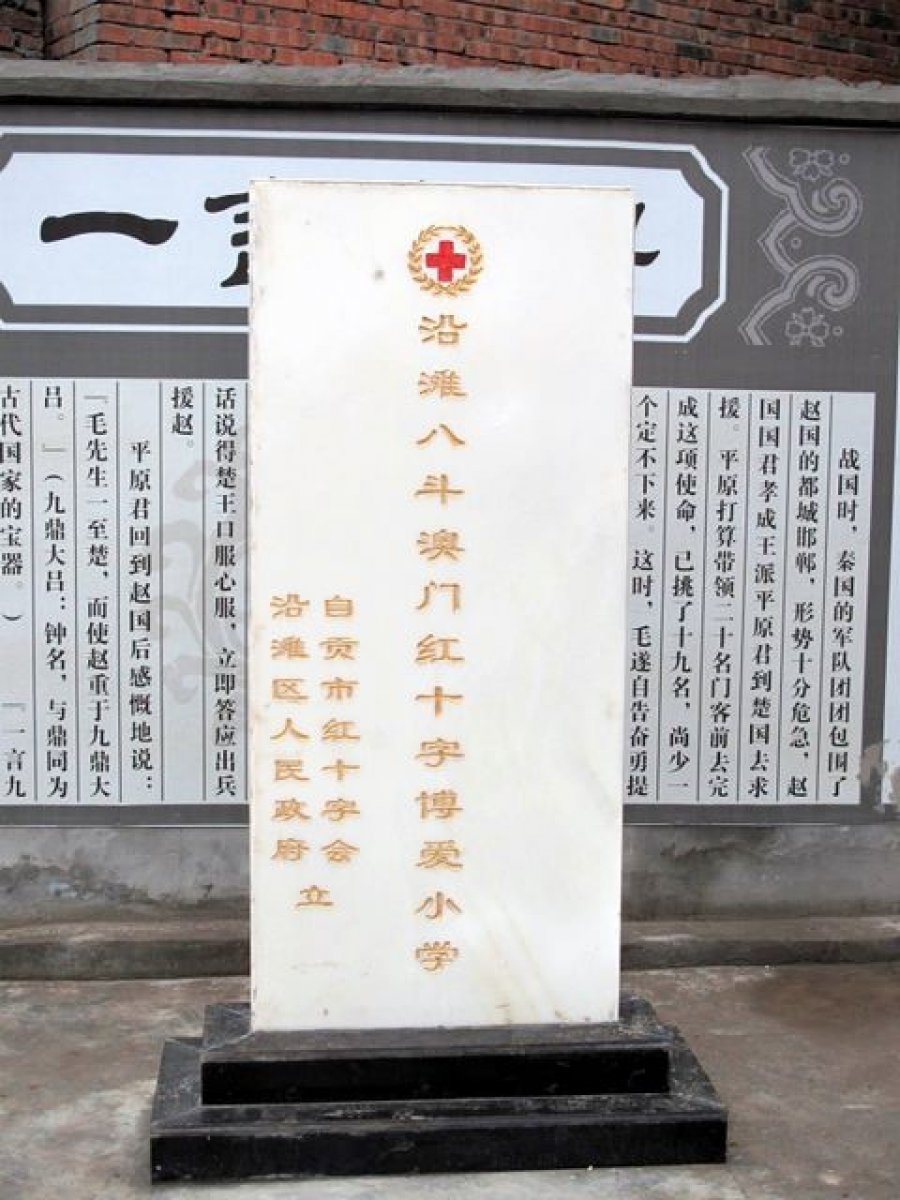 沿滩八斗澳门红十字博爱小学
自贡市红十字会
沿滩区人民政府
立
一
战国时，秦国的军队团团包围了
赵国的都城邯郸，形势十分危急，赵
国国君孝成王派平原君到楚国去求
援。平原打算带领二十名门客前去完
成这项使命，已挑了十九名，尚少一
个定不下来。这时，毛遂自告奋勇提
话说得楚王口服心服，立即答应出兵
援赵。
平原君回到赵国后感慨地说：
『毛先生一至楚，而使赵重于九鼎大
吕。』（九鼎大吕：钟名，与鼎同为
古代国家的宝器。）『一言九